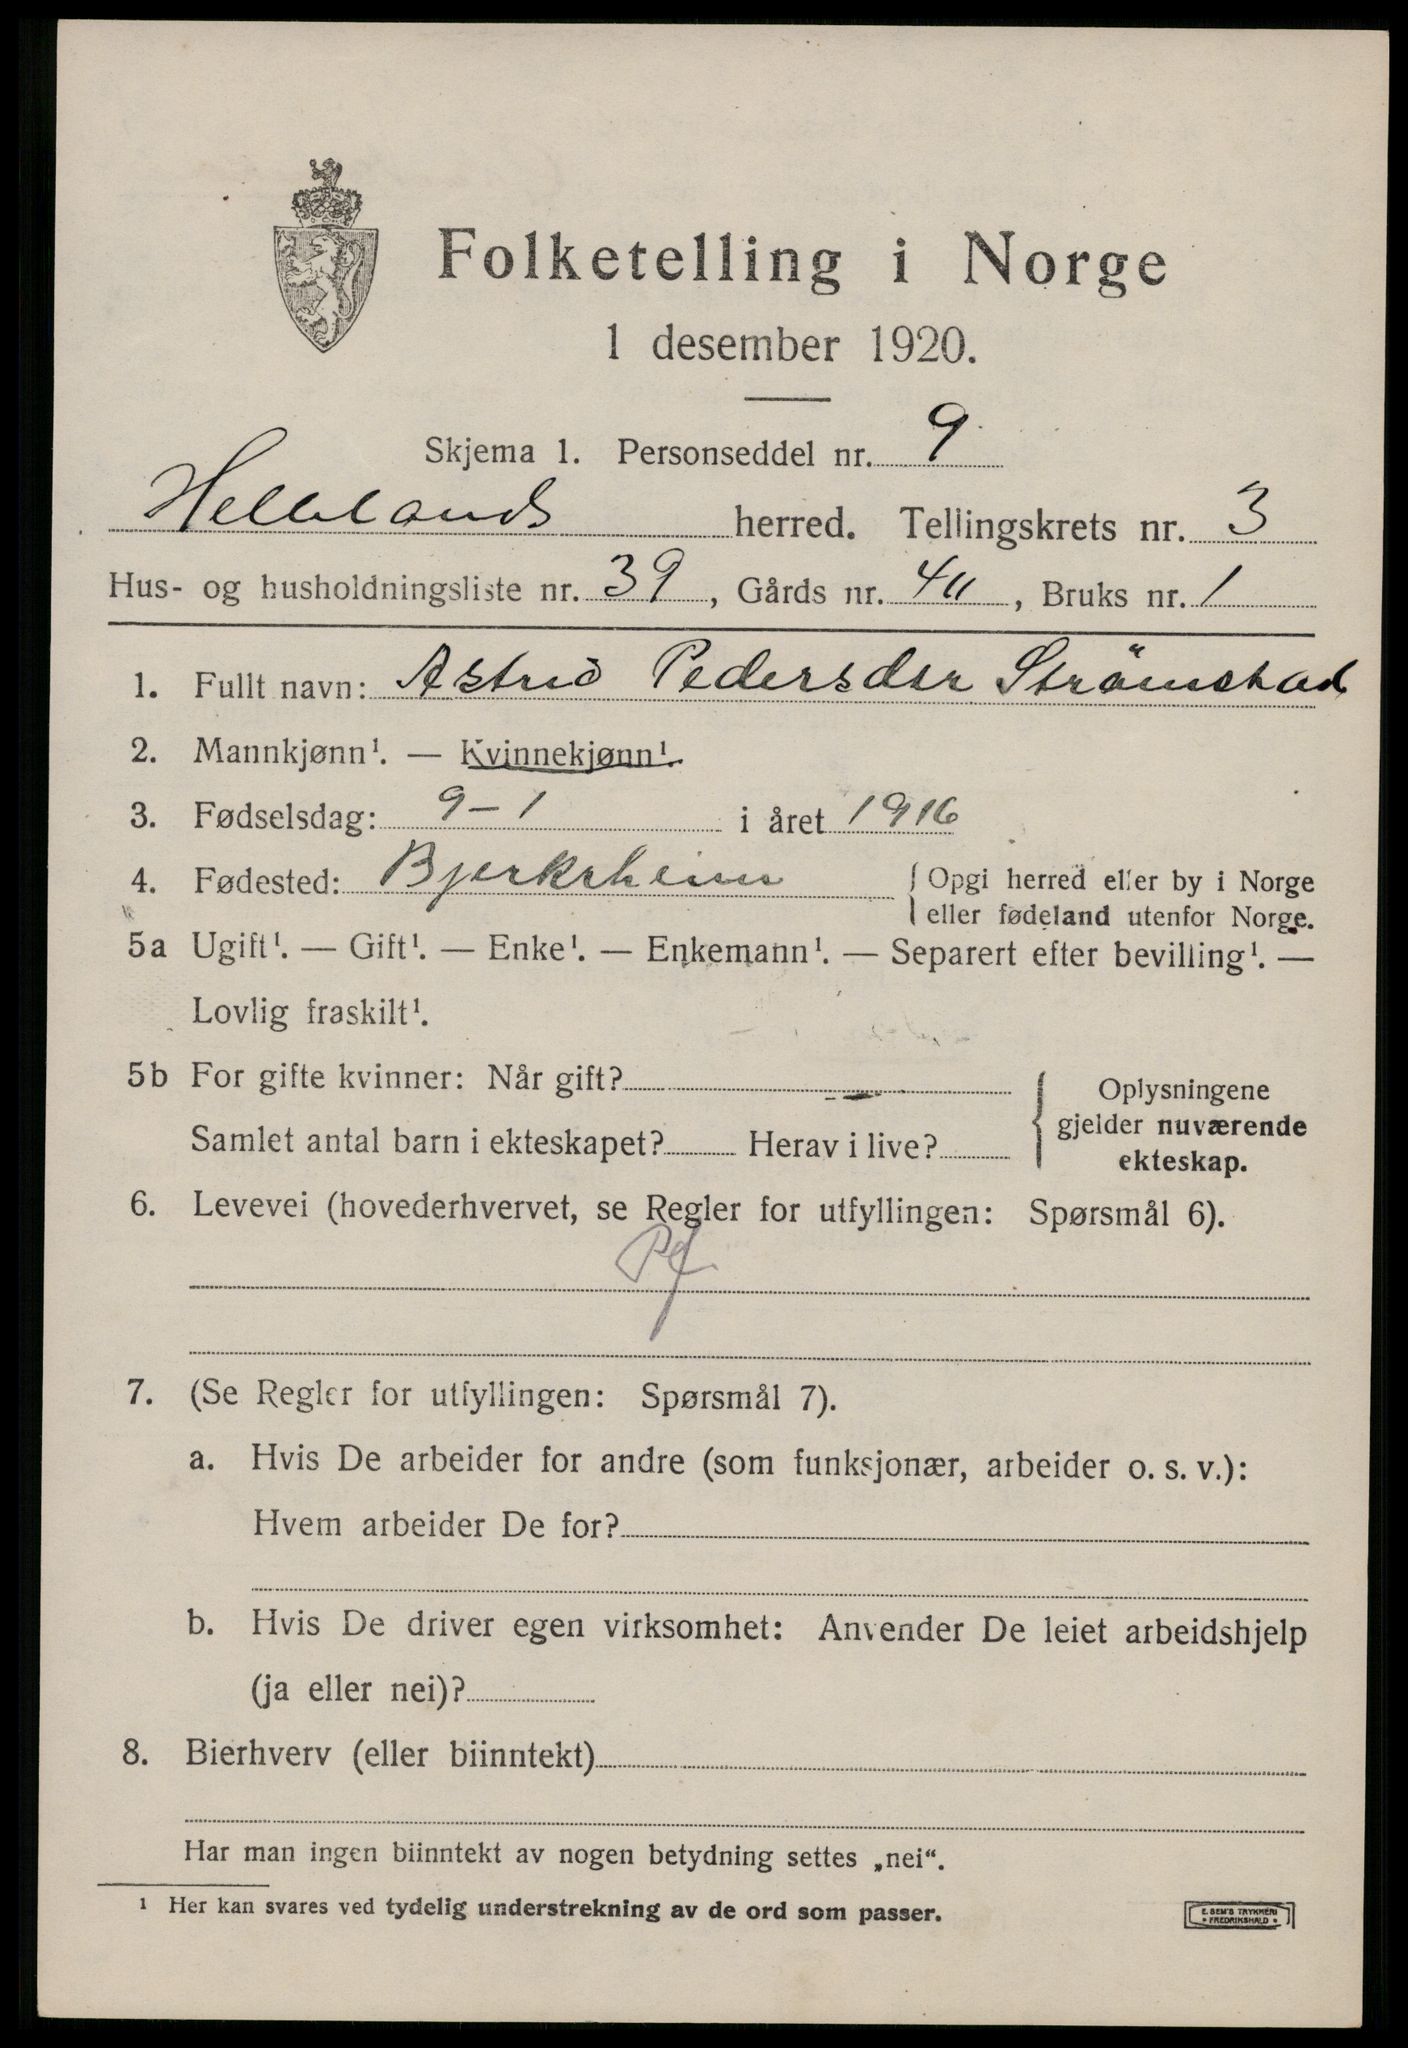 Folketelling i Norge
1 desember 1920.
Skjema 1. Personseddel nr. 9
Hellelands herred. Tellingskrets nr. 3
Hus- og husholdningsliste nr. 39, Gårds nr. 411, Bruks nr. 1
1. Fullt navn: Astrid Pedersdtr Strömstad
2. Mannkjønn¹. — Kvinnekjønn¹.
3. Fødselsdag: 9-1 i året 1916
4. Fødested: Bjerkrheim { Opgi herred eller by i Norge
eller fødeland utenfor Norge.
5a Ugift¹. — Gift¹. — Enke¹. — Enkemann¹. — Separert efter bevilling¹. —
Lovlig fraskilt¹.
5b For gifte kvinner: Når gift?
Samlet antal barn i ekteskapet? Herav i live?
{ Oplysningene
gjelder nuværende
ekteskap.
6. Levevei (hovederhvervet, se Regler for utfyllingen: Spørsmål 6).
7. (Se Regler for utfyllingen: Spørsmål 7).
a. Hvis De arbeider for andre (som funksjonær, arbeider o. s. v.):
Hvem arbeider De for?
b. Hvis De driver egen virksomhet: Anvender De leiet arbeidshjelp
(ja eller nei)?
8. Bierhverv (eller biinntekt)
Har man ingen biinntekt av nogen betydning settes „nei“.
¹ Her kan svares ved tydelig understrekning av de ord som passer.
E. SEM'S TRYKKERI
• FREDRIKSHALD •